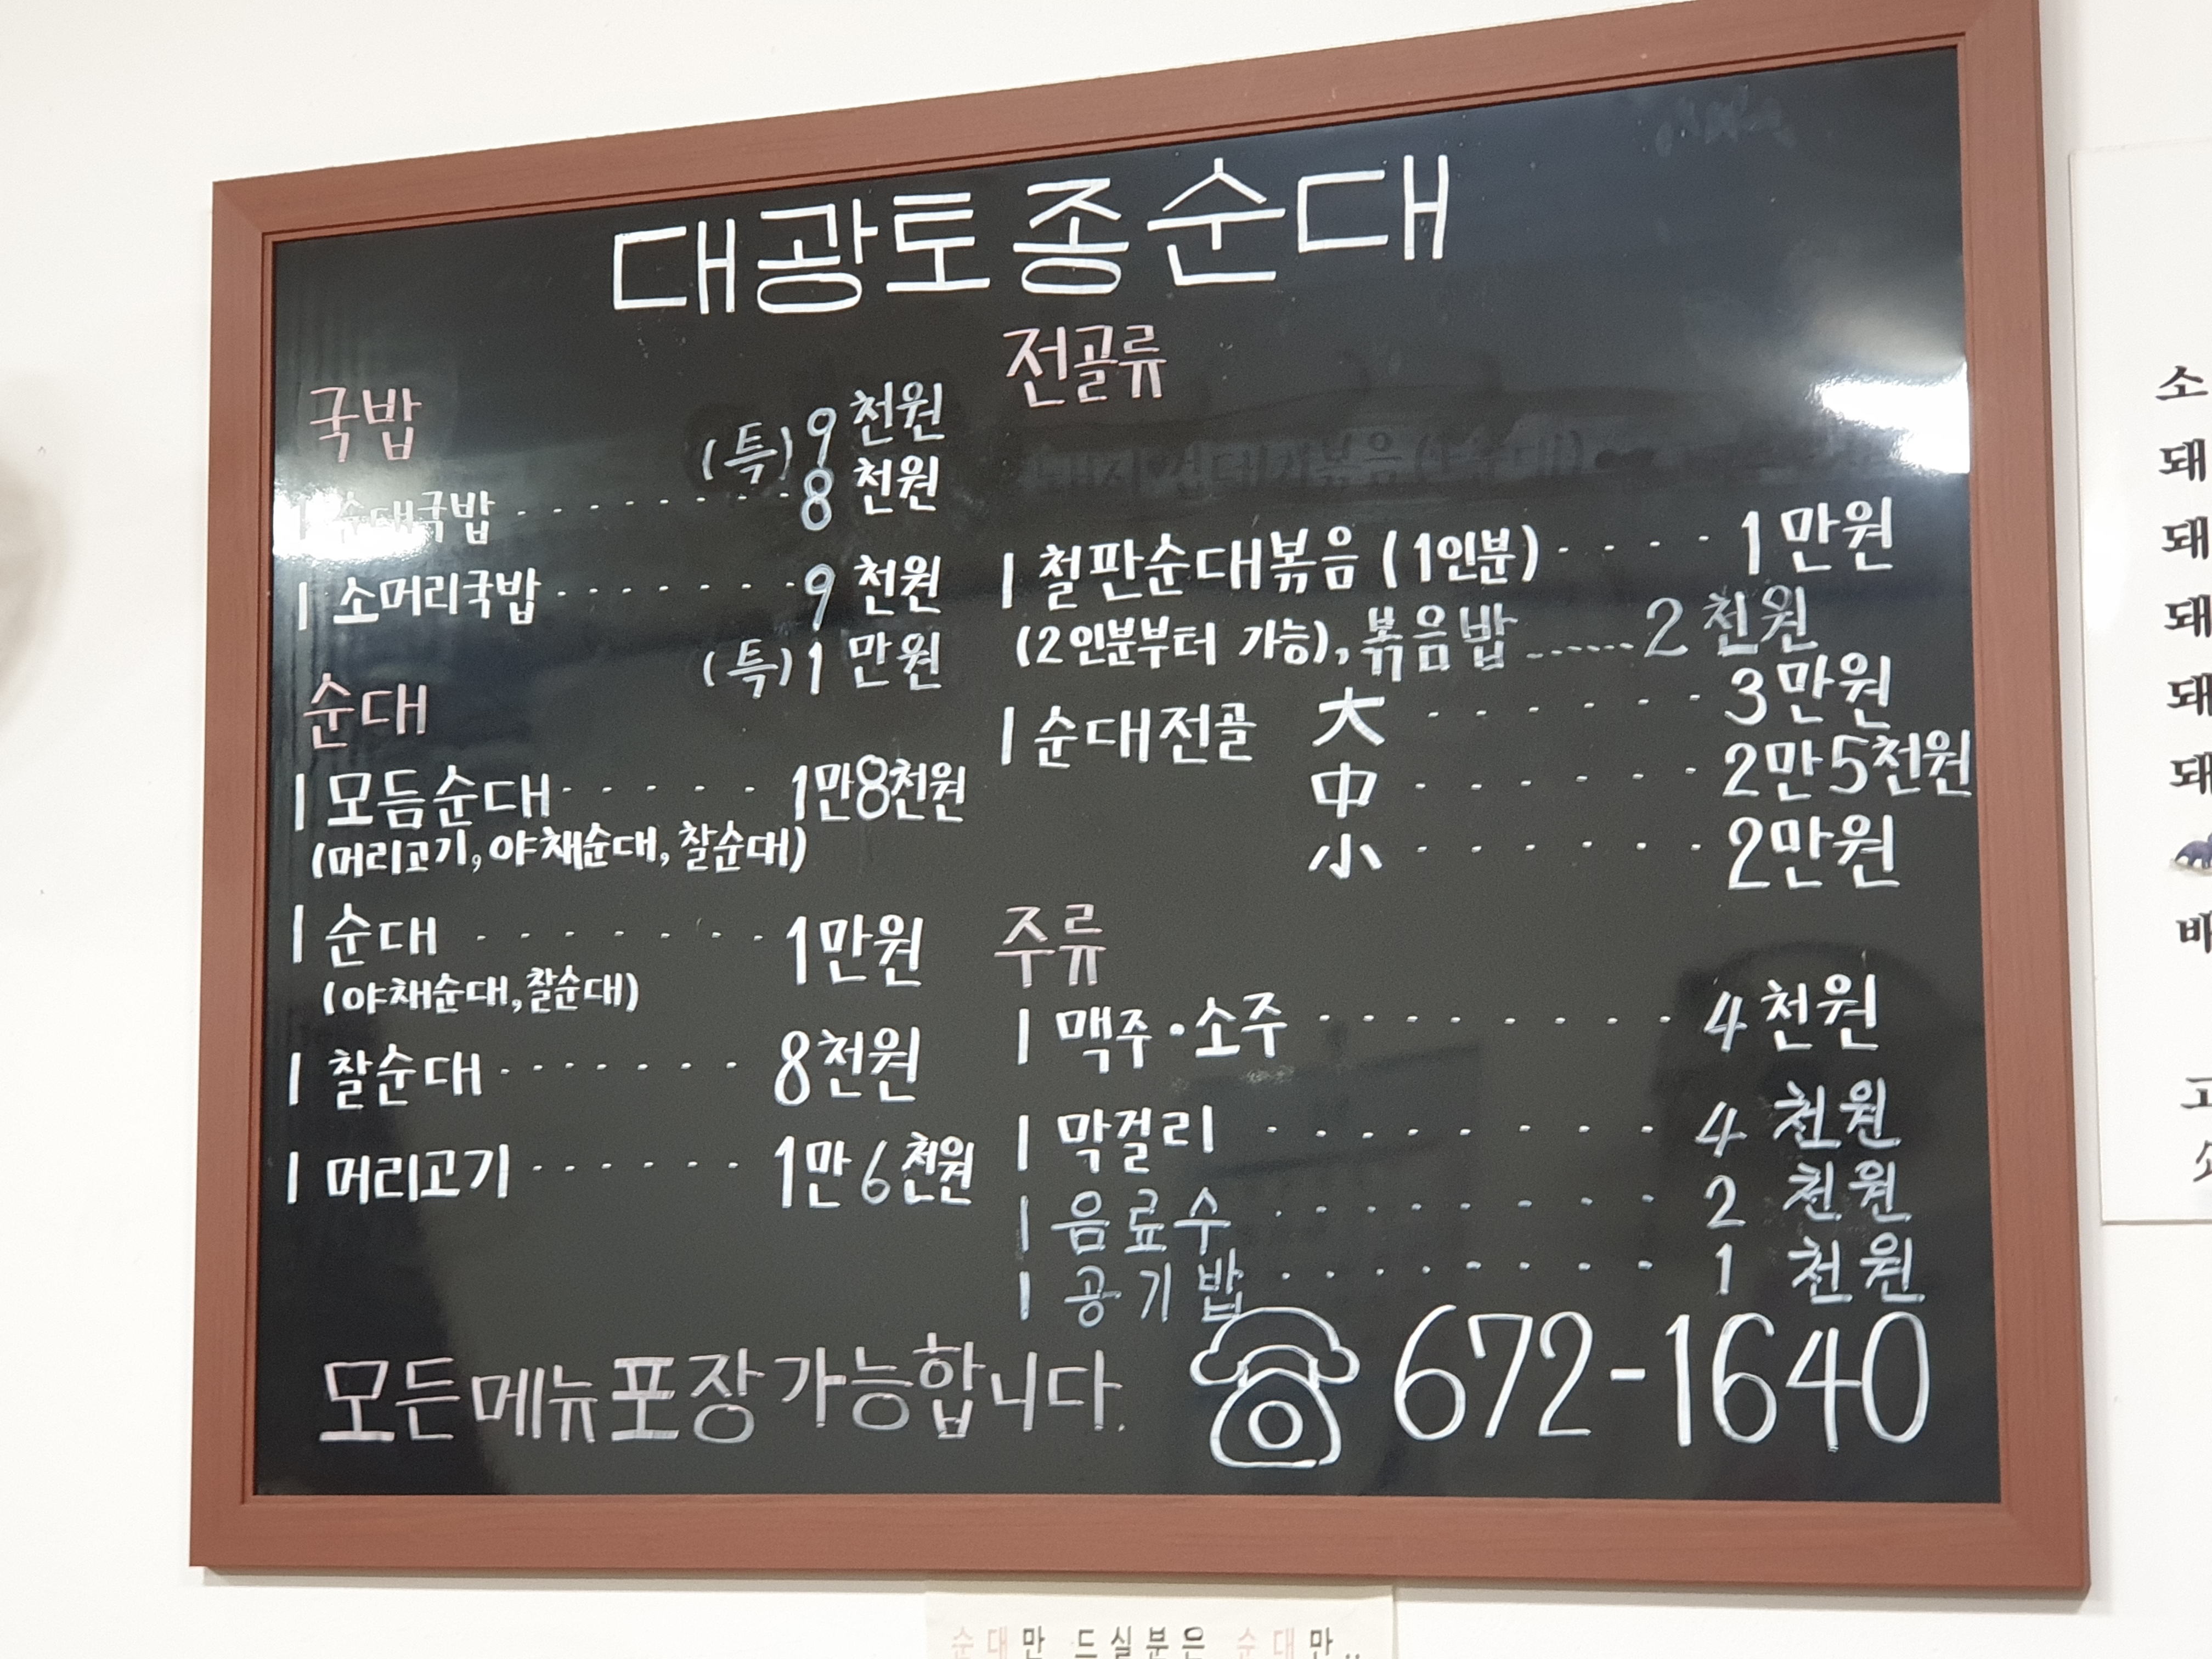 대광토종순대
국밥
(특) 9천원
| 순대국밥 ········ 8천원
| 소머리국밥 ······· 9천원
(특) 1만원
순대
| 모듬순대 ····· 1만8천원
(머리고기, 야채순대, 찰순대)
| 순대 ········ 1만원
(야채순대, 찰순대)
| 찰순대 ······· 8천원
| 머리고기 ······ 1만6천원
전골류
| 철판순대볶음 (1인분) ···· 1만원
(2인분부터 가능), 볶음밥 ...... 2천원
| 순대전골 大 ······ 3만원
中 ······ 2만5천원
小 ······ 2만원
주류
| 맥주·소주 ········· 4천원
| 막걸리 ········· 4천원
| 음료수 ········· 2천원
| 공기밥 ········· 1천원
모든메뉴포장가능합니다.
☎ 672-1640
순대만 드실분은 순대만..
소
돼
돼
돼
돼
돼
배
고